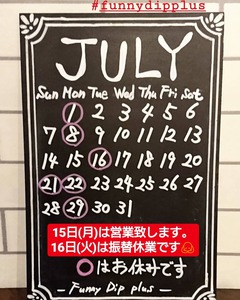 #funnydipplus
JULY
Sun Mon Tue Wed Thu Fri Sat
1 2 3 4 5 6
7 8 9 10 11 12 13
14 15 16 17 18 19 20
21 22 23 24 25 26 27
28 29 30 31
15日(月)は営業致します。
16日(火)は振替休業です
○はお休みです
- Funny Dip plus -